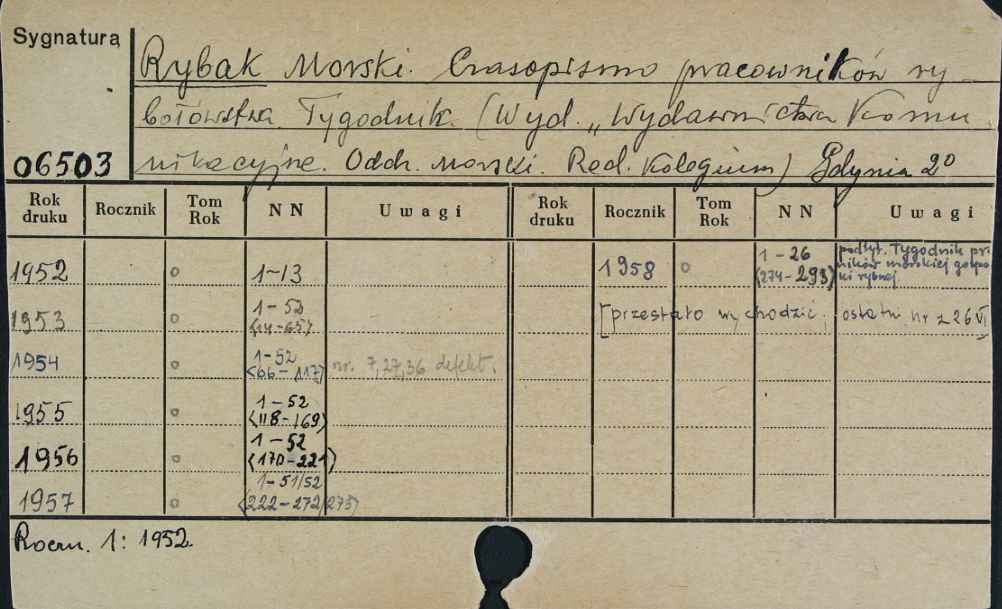 Sygnatura
Rybak Morski. Czasopismo pracowników ry-
bołówstwa. Tygodnik. (Wyd. „Wydawnictwa Komu
06503 nikacyjne. Oddz. Morski. Red. Kolegium) Gdynia 2°
Rok druku Rocznik Tom Rok NN Uwagi Rok druku Rocznik Tom Rok NN Uwagi
1952 o 1-13 1958 o 1-26 <274-293> podtyt. Tygodnik pra
ników morskiej gospo
ki rybnej
1953 o 1-53 <14-65> [przestało wychodzić, ostatni nr z 26.VI]
1954 o 1-52 <66-117> nr. 7,27,36 defekt.
1955 o 1-52 <118-169>
1956 o 1-52 <170-221>
1957 o 1-51/52 <222-272/273>
Roczn. 1: 1952.